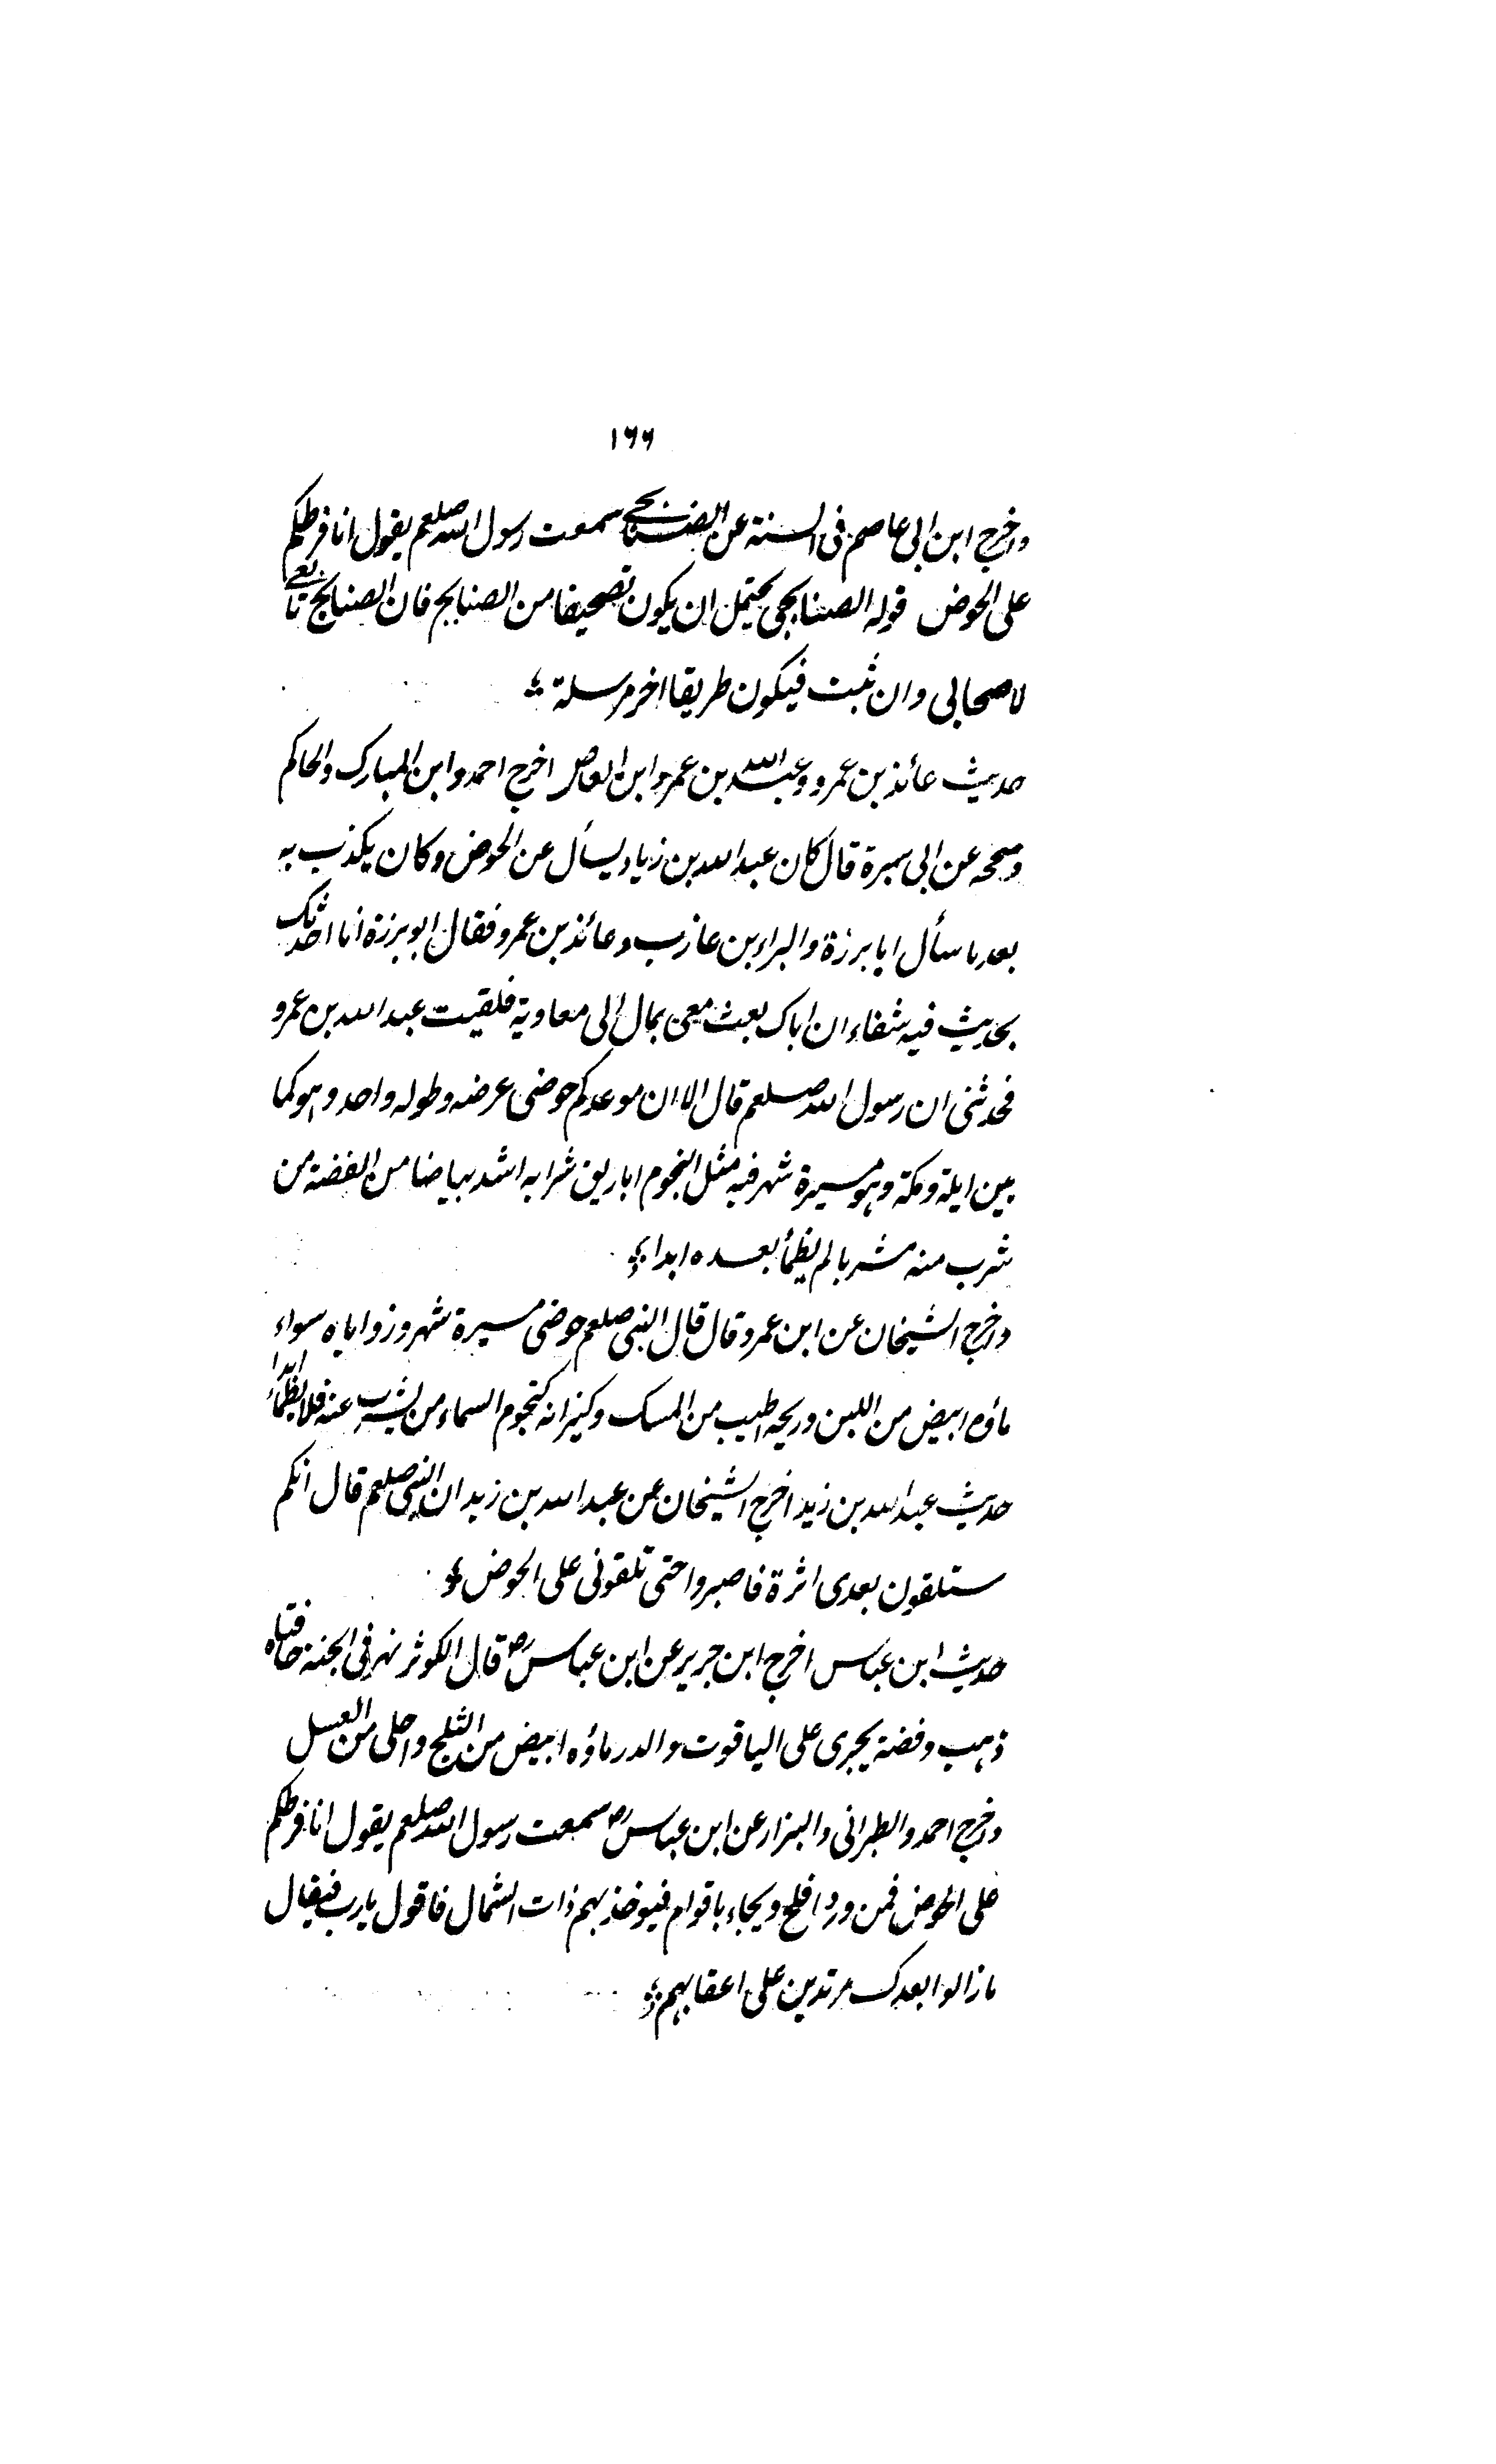 ١٦٦
واخرج ابن ابی عاصم فی السنة عن الصنابحی سمعت رسول الله صلعم یقول انا فرطکم
علی الحوض قوله الصنابحی یحتمل ان یکون تصحیفا من الصنابح فان الصنابح تابعی
لا صحابی وان ثبت فیکون طریقا اخر مرسلة
حدیث عائذ بن عمرو وعبد الله بن عمرو ابن العاص اخرج احمد وابن المبارک والحاکم
وصححه عن ابی سبرة قال کان عبد الله بن زیاد یسأل عن الحوض وکان یکذب به
بعد ما سأل ابا برزة والبراء بن عازب وعائذ بن عمرو فقال ابو برزة انا احدثک
بحدیث فیه شفاء ان اباک بعث معی بمال الی معاویة فلقیت عبد الله بن عمرو
فحدثنی ان رسول الله صلعم قال الا ان موعدکم حوضی عرضه وطوله واحد وهو کما
بین ایلة ومکة وهو مسیرة شهر فیه مثل النجوم اباریق شرابه اشد بیاضا من الفضة من
شرب منه مشربا لم یظمأ بعده ابدا
واخرج الشیخان عن ابن عمرو قال قال النبی صلعم حوضی مسیرة شهر وزوایاه سواء
ماؤه ابیض من اللبن وریحه اطیب من المسک وکیزانه کنجوم السماء من یشرب عنه فلا یظمأ ابدا
حدیث عبد الله بن زید اخرج الشیخان عن عبد الله بن زید ان النبی صلعم قال انکم
ستلقون بعدی اثرة فاصبروا حتی تلقونی علی الحوض
حدیث ابن عباس اخرج ابن جریر عن ابن عباس رض قال الکوثر نهر فی الجنة حافتاه
ذهب وفضة یجری علی الیاقوت والدر ماؤه ابیض من الثلج واحلی من العسل
واخرج احمد والطبرانی والبزار عن ابن عباس رض سمعت رسول الله صلعم یقول انا فرطکم
علی الحوض فمن ورد افلح ویجاء باقوام فیوخذ بهم ذات الشمال فاقول یا رب فیقال
ما زالوا بعدک مرتدین علی اعقابهم